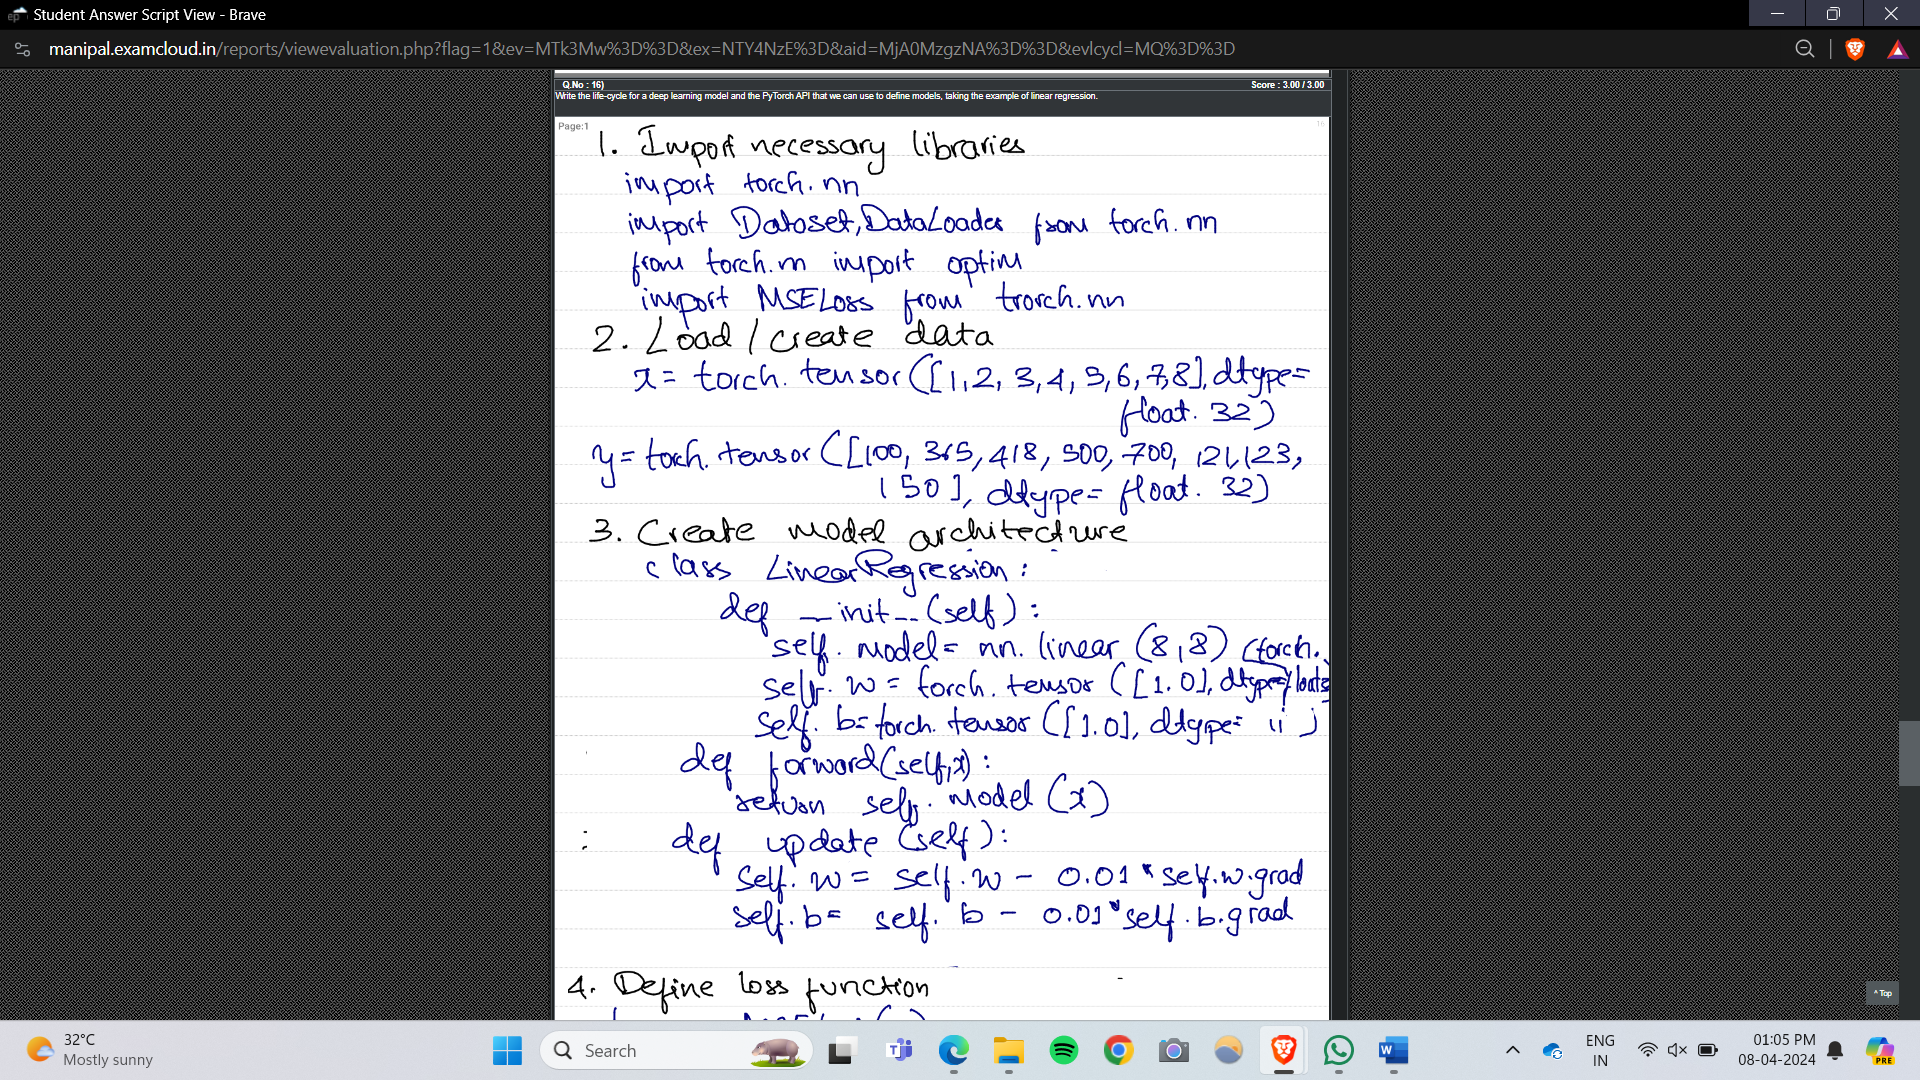 Student Answer Script View - Brave
manipal.examcloud.in/reports/viewevaluation.php?flag=1&ev=MTk3Mw%3D%3D&ex=NTY4NzE%3D&aid=MjA0MzgzNA%3D%3D&evlcycl=MQ%3D%3D
Q.No : 16) Score : 3.00 / 3.00
Write the life-cycle for a deep learning model and the PyTorch API that we can use to define models, taking the example of linear regression.
Page:1 16
1. Import necessary libraries
import torch.nn
import Dataset,DataLoader from torch.nn
from torch.nn import optim
import MSELoss from trorch.nn
2. Load / create data
x = torch.tensor([1,2,3,4,5,6,7,8], dtype=
float.32)
y = torch.tensor([100, 365, 418, 500, 700, 121,123,
150], dtype= float.32)
3. Create model architecture
class LinearRegression :
def __init__(self) :
self.model = nn.linear (8,8) (torch.
self.w = torch.tensor ([1.0], dtype=
self.b = torch.tensor ([1.0], dtype= ii )
def forward(self,x) :
return self.model (x)
def update (self) :
self.w = self.w - 0.01 * self.w.grad
self.b = self.b - 0.01 * self.b.grad
4. Define loss function
^ Top
32°C
Mostly sunny
Search
ENG
IN
01:05 PM
08-04-2024
PRE